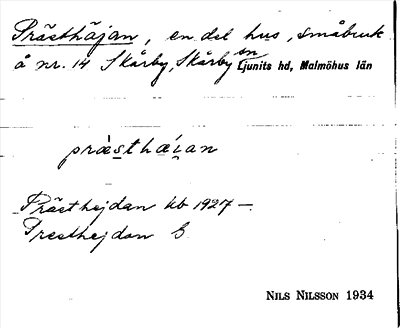 Prästhäjan, en del hus, småbruk
å nr. 14 Skårby, Skårby sn Ljunits hd, Malmöhus län
præ̀sthæi̯an
Prästhejdan kb 1927 –
Presthejdan G
NILS NILSSON 1934